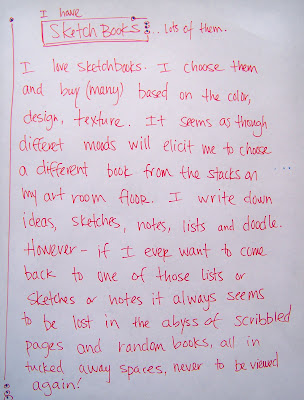 I have
Sketch Books ... lots of them.
I love sketchbooks. I choose them
and buy (many) based on the color,
design, texture. It seems as though
different moods will elicit me to choose
a different book from the stacks on
my art room floor. I write down
ideas, sketches, notes, lists and doodle.
However - if I ever want to come
back to one of those lists or
sketches or notes it always seems
to be lost in the abyss of scribbled
pages and random books, all in
tucked away spaces, never to be viewed
again!